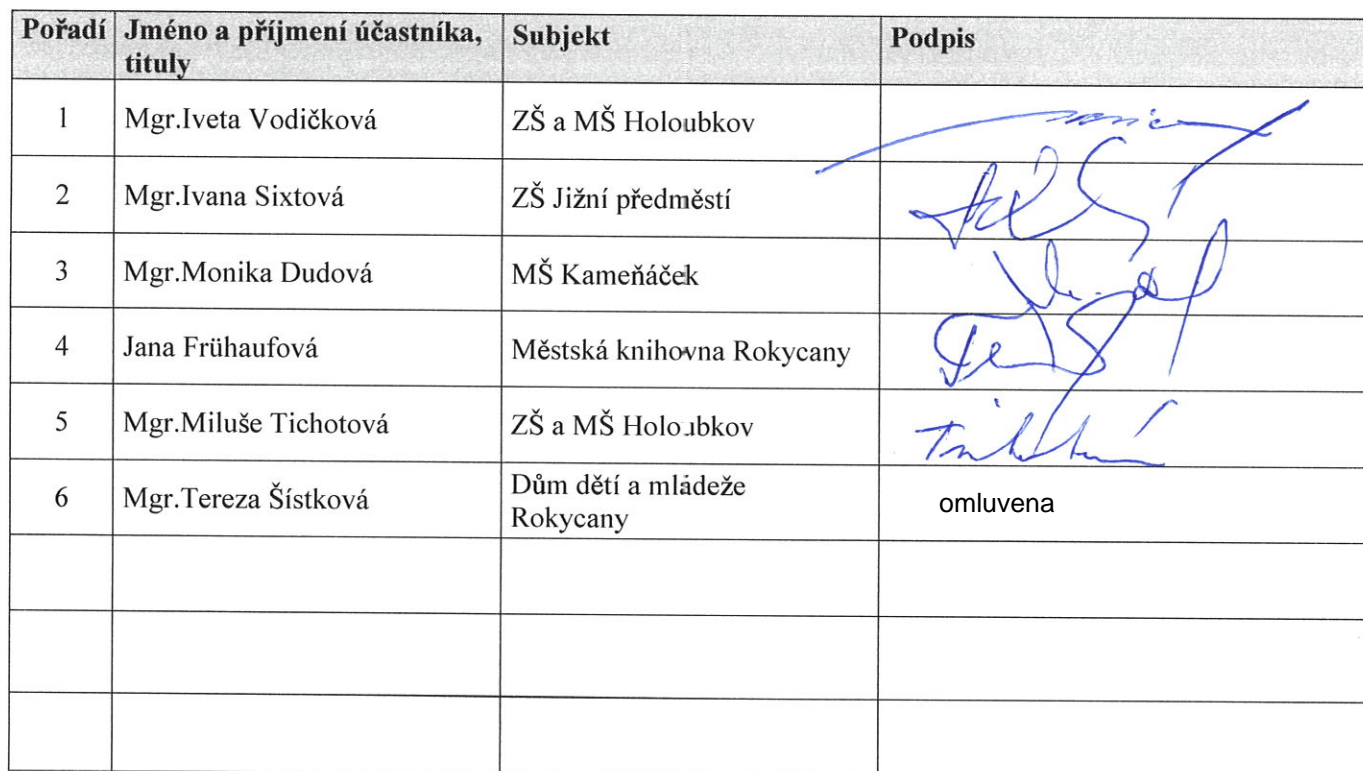 Pořadí Jméno a příjmení účastníka, tituly Subjekt Podpis
1 Mgr.Iveta Vodičková ZŠ a MŠ Holoubkov
2 Mgr.Ivana Sixtová ZŠ Jižní předměstí
3 Mgr.Monika Dudová MŠ Kameňáček
4 Jana Frühaufová Městská knihovna Rokycany
5 Mgr.Miluše Tichotová ZŠ a MŠ Holoubkov
6 Mgr.Tereza Šístková Dům dětí a mládeže Rokycany omluvena